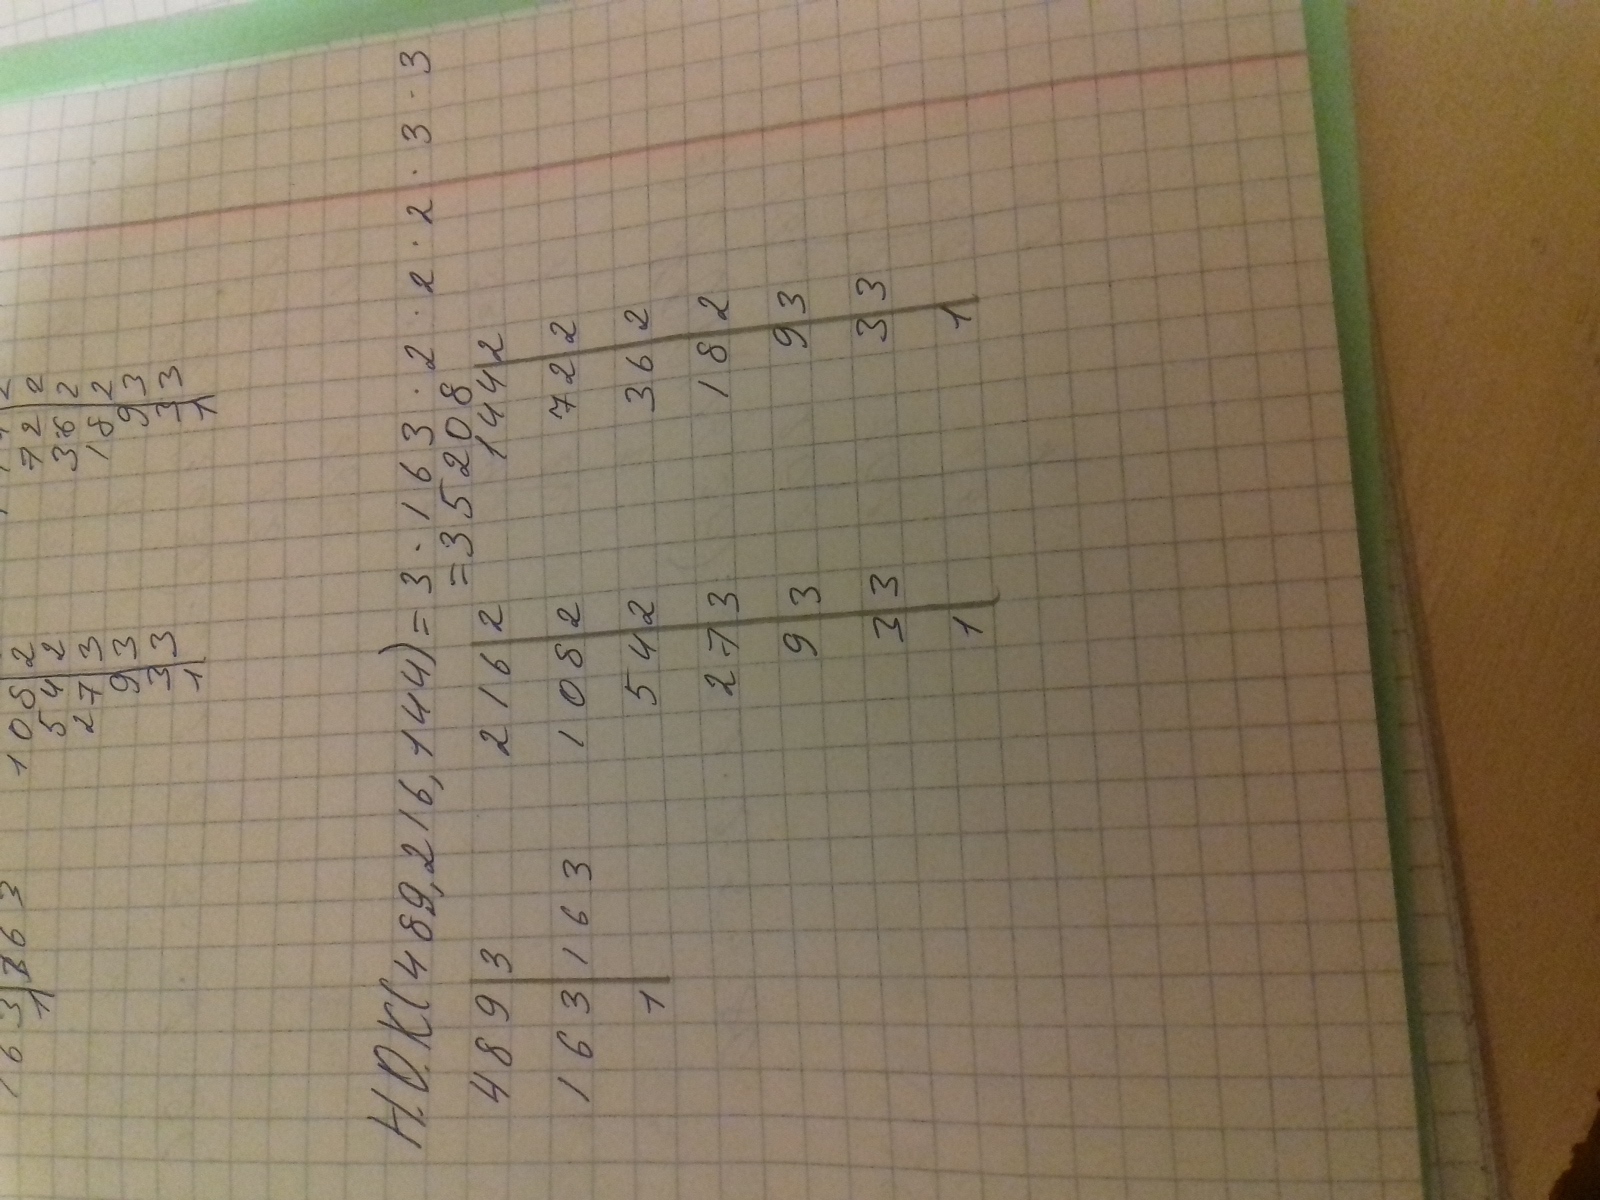 163 163
1
108 2
54 2
27 3
9 3
3 3
1
72 2
36 2
18 2
9 3
3 3
1
Н.О.К(489,216,144)=3·163·2·2·2·3·3
=35208
489 3
163 163
1
216 2
108 2
54 2
27 3
9 3
3 3
1
144 2
72 2
36 2
18 2
9 3
3 3
1